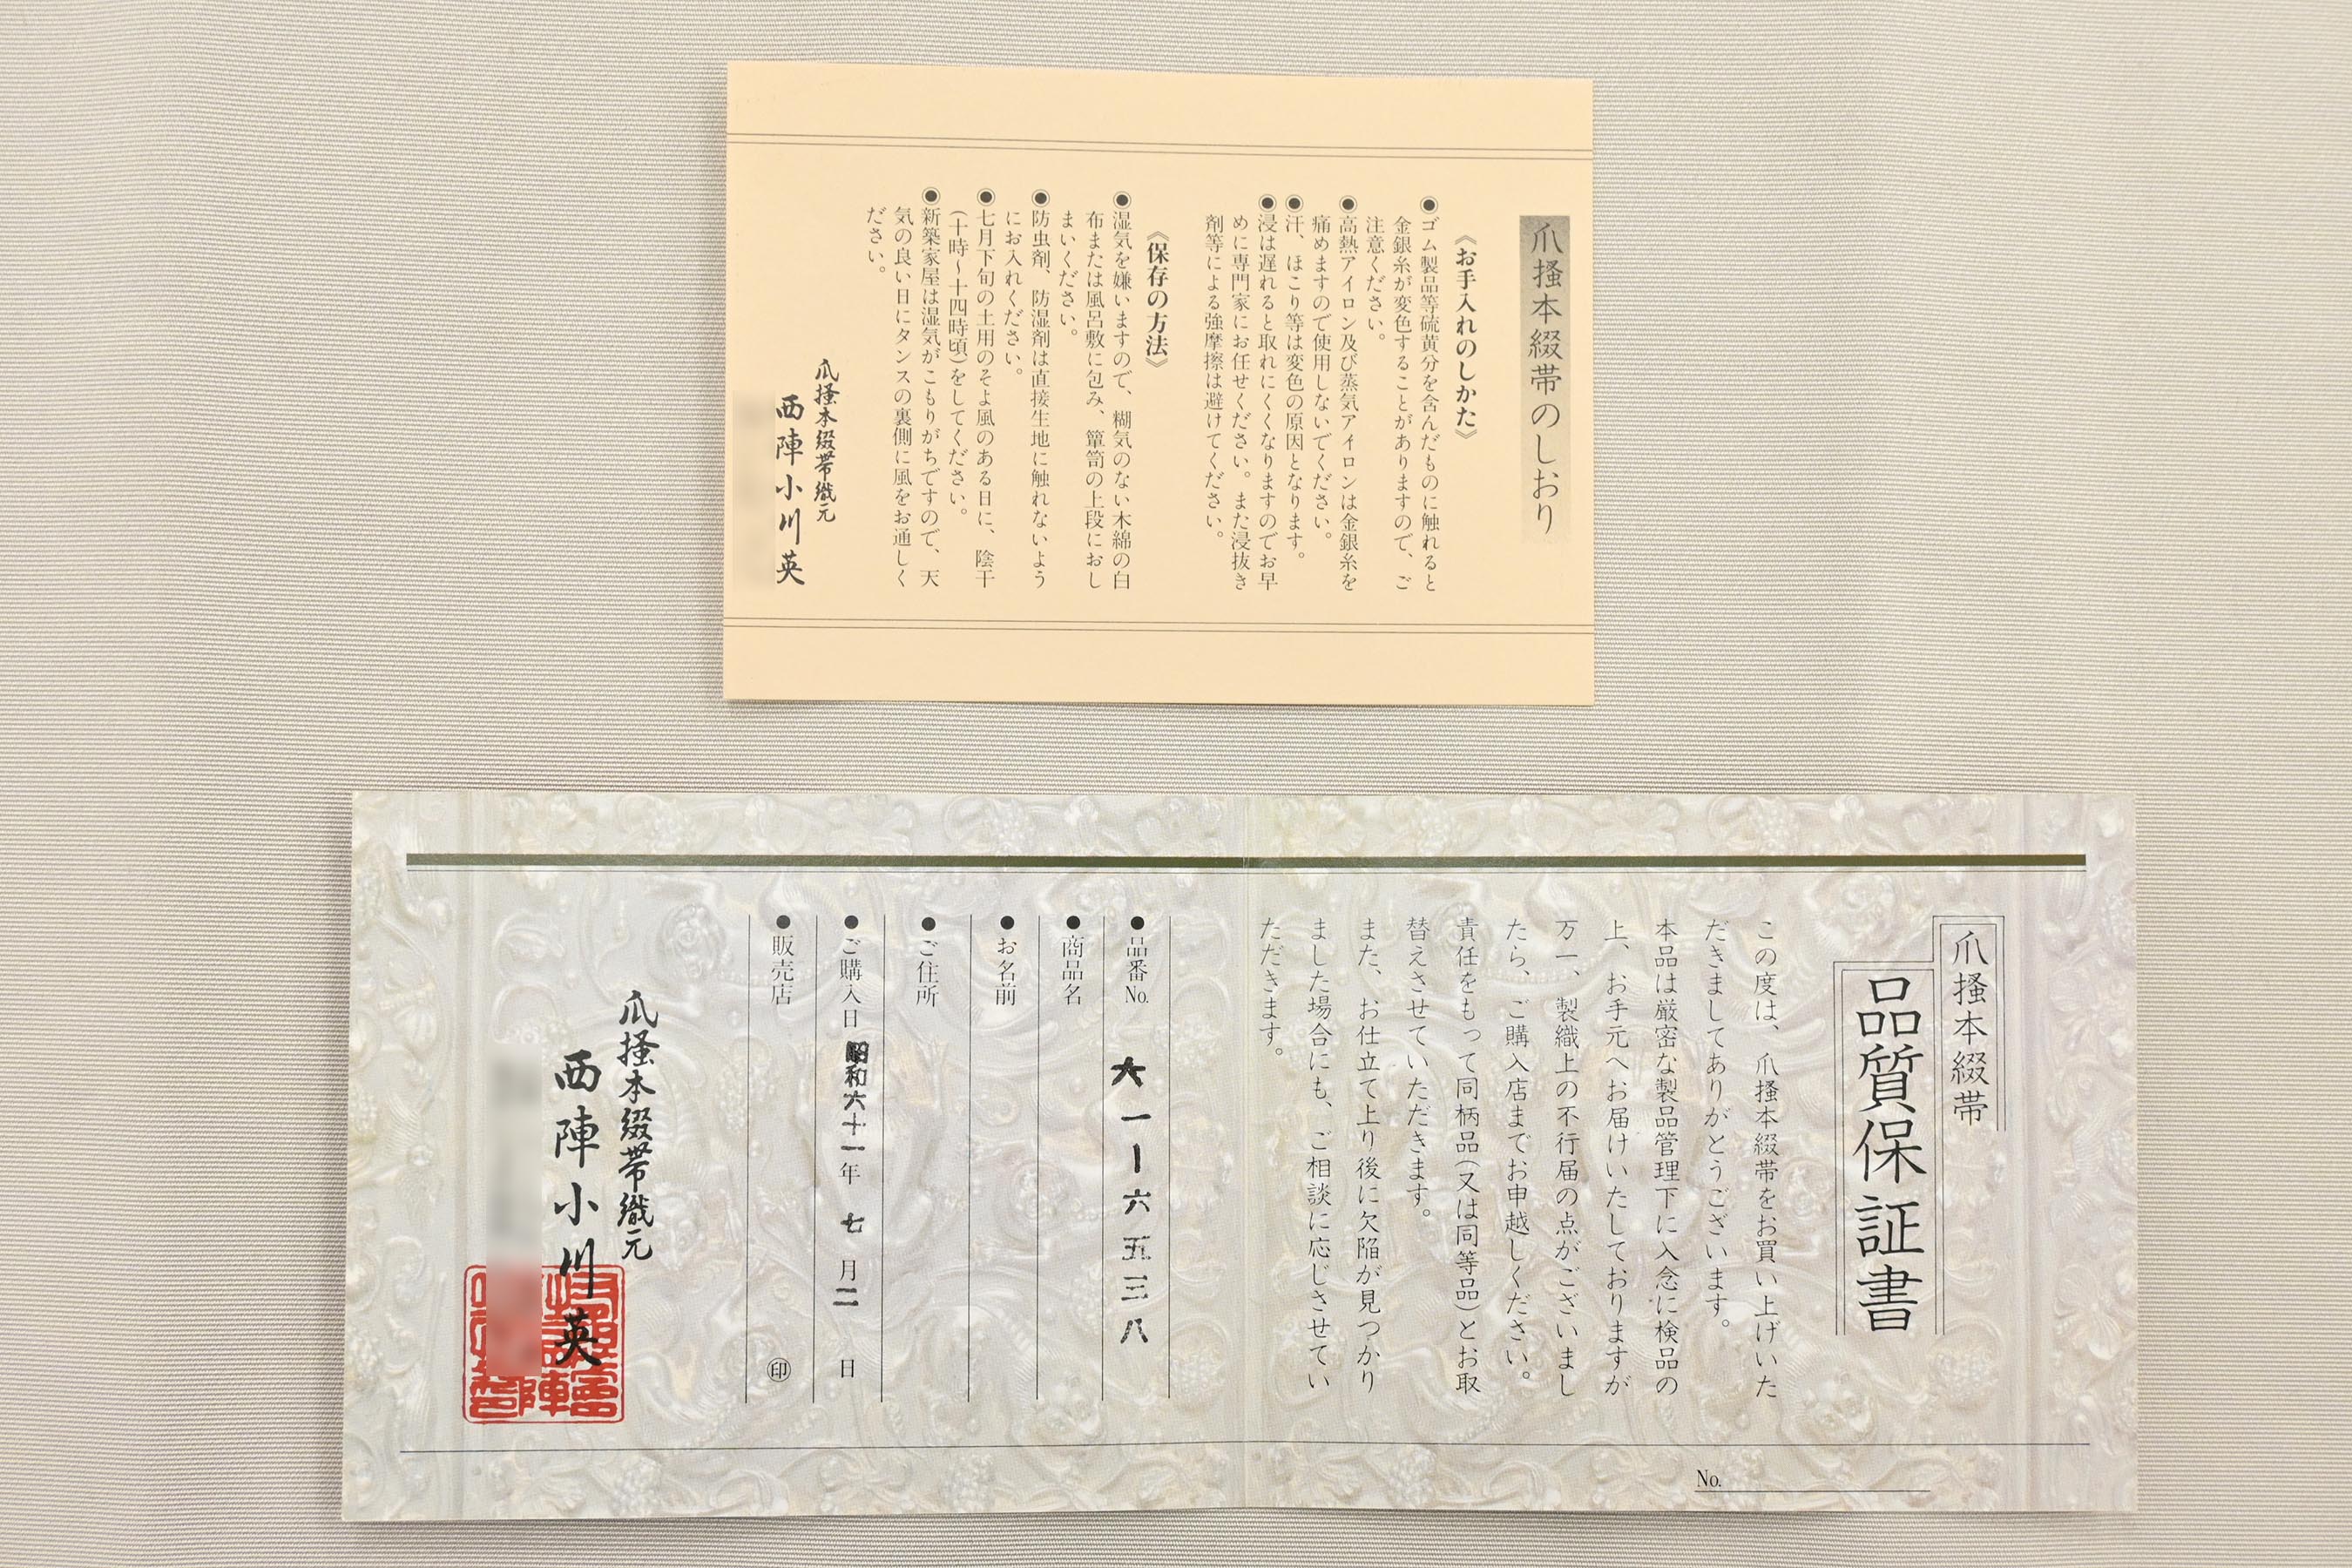 爪掻本綴帯のしおり
《お手入れのしかた》
◉ゴム製品等硫黄分を含んだものに触れると
金銀糸が変色することがありますので、ご
注意ください。
◉高熱アイロン及び蒸気アイロンは金銀糸を
痛めますので使用しないでください。
◉汗、ほこり等は変色の原因となります。
◉浸は遅れると取れにくくなりますのでお早
めに専門家にお任せください。また浸抜き
剤等による強摩擦は避けてください。
《保存の方法》
◉湿気を嫌いますので、糊気のない木綿の白
布または風呂敷に包み、箪笥の上段におし
まいください。
◉防虫剤、防湿剤は直接生地に触れないよう
にお入れください。
◉七月下旬の土用のそよ風のある日に、陰干
(十時〜十四時頃)をしてください。
◉新築家屋は湿気がこもりがちですので、天
気の良い日にタンスの裏側に風をお通しく
ださい。
爪掻本綴帯織元
西陣小川英
爪掻本綴帯
品質保証書
この度は、爪掻本綴帯をお買い上げいた
だきましてありがとうございます。
本品は厳密な製品管理下に入念に検品の
上、お手元へお届けいたしておりますが
万一、製織上の不行届の点がございまし
たら、ご購入店までお申越しください。
責任をもって同柄品(又は同等品)とお取
替えさせていただきます。
また、お仕立て上り後に欠陥が見つかり
ました場合にも、ご相談に応じさせてい
ただきます。
●品番No. 六一ー六五三八
●商品名
●お名前
●ご住所
●ご購入日 昭和六十一年 七 月二 日
●販売店 ㊞
爪掻本綴帯織元
西陣小川英
No.